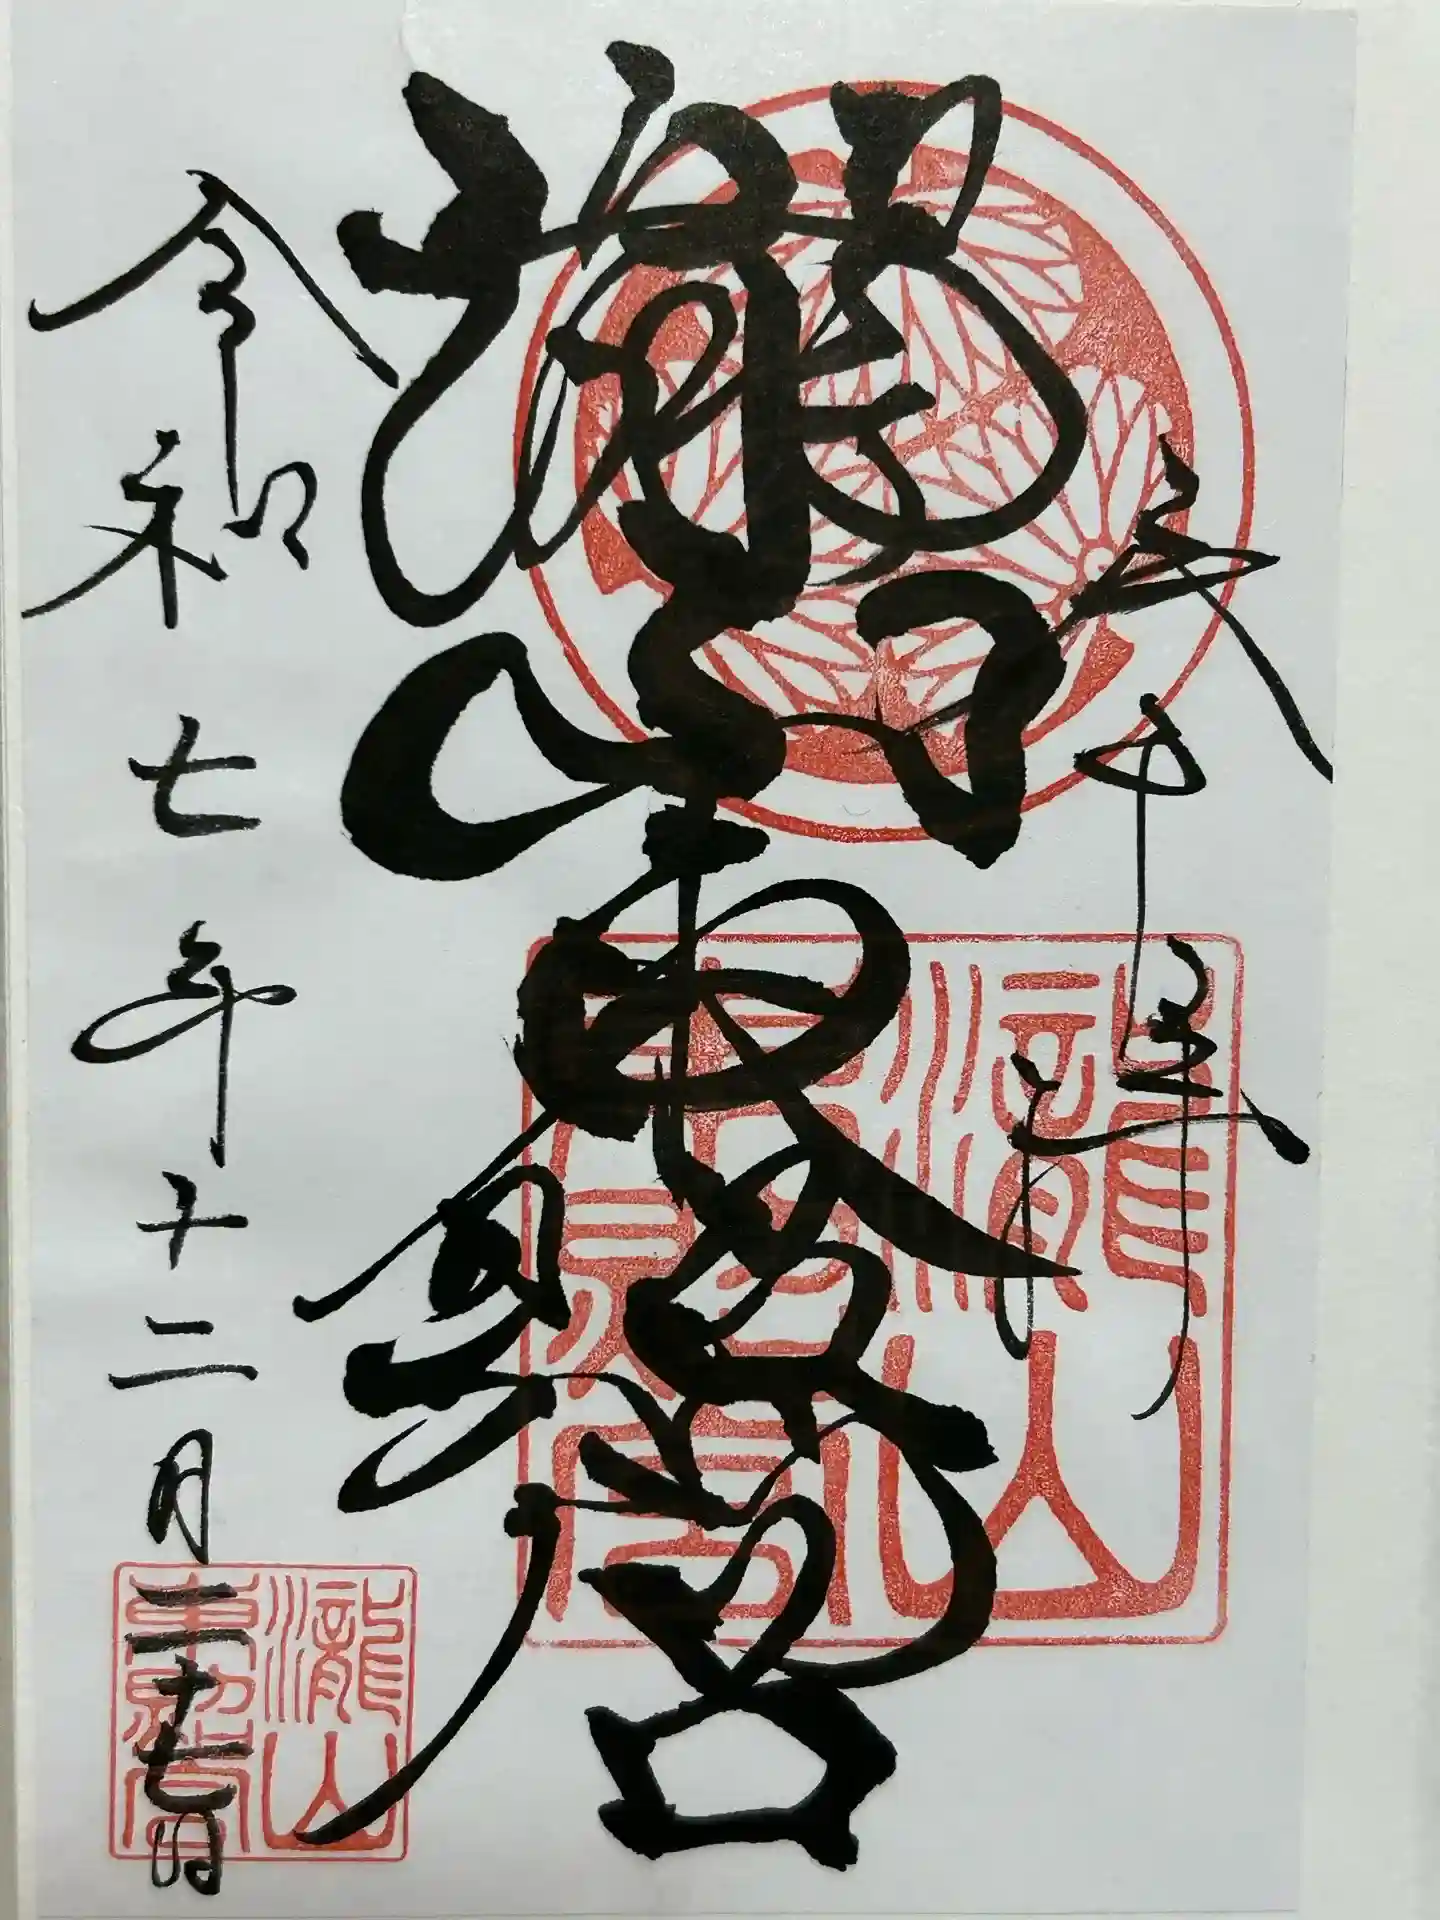 瀧山東照宮
令和七年十二月二十七日
瀧山
東照宮
瀧山
東照宮